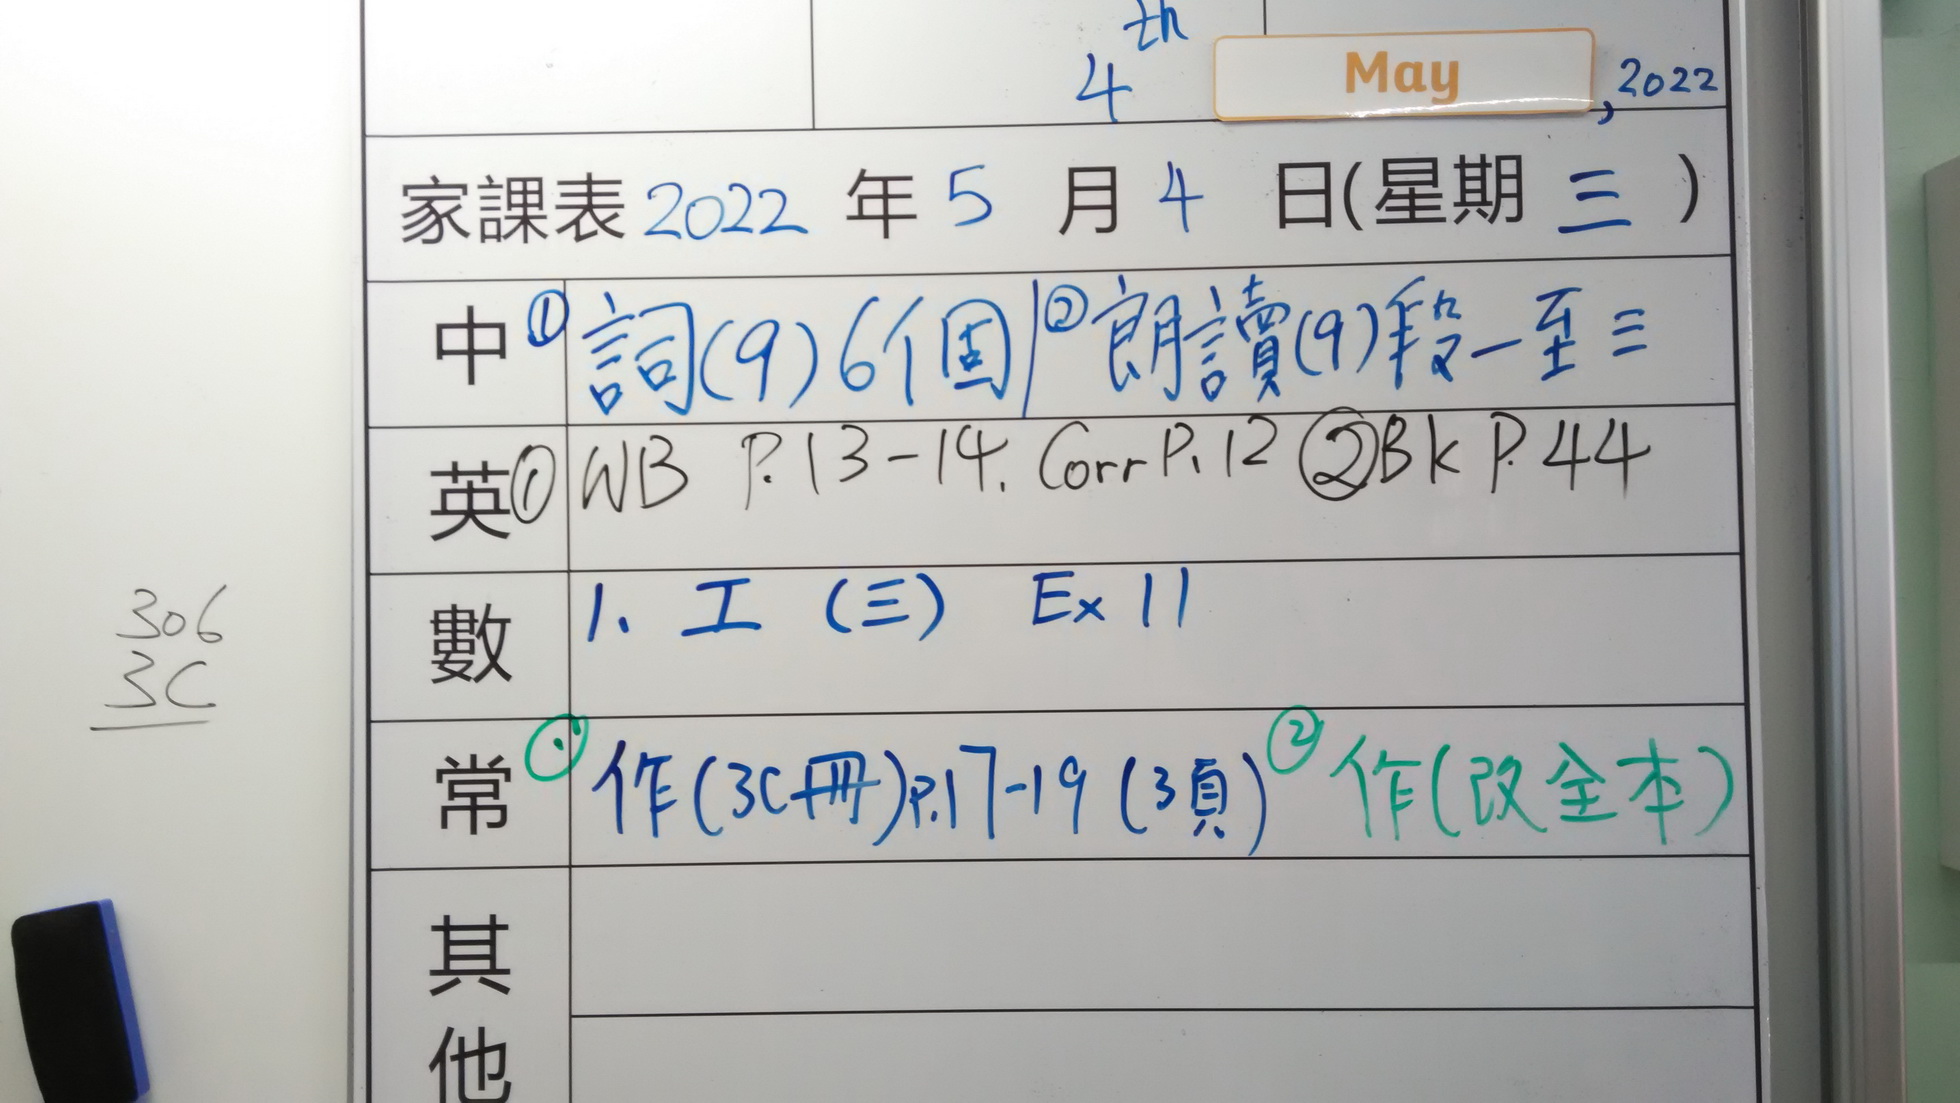 4th May, 2022
家課表 2022 年 5 月 4 日(星期 三 )
中 ① 詞(9) 6個 | ② 朗讀(9)段一至三
英 ① WB P.13-14. Corr P.12 ② Bk P.44
數 1. 工 (三) Ex 11
常 ① 作(3C冊)P.17-19 (3頁) ② 作(改全本)
其
他
306
3C